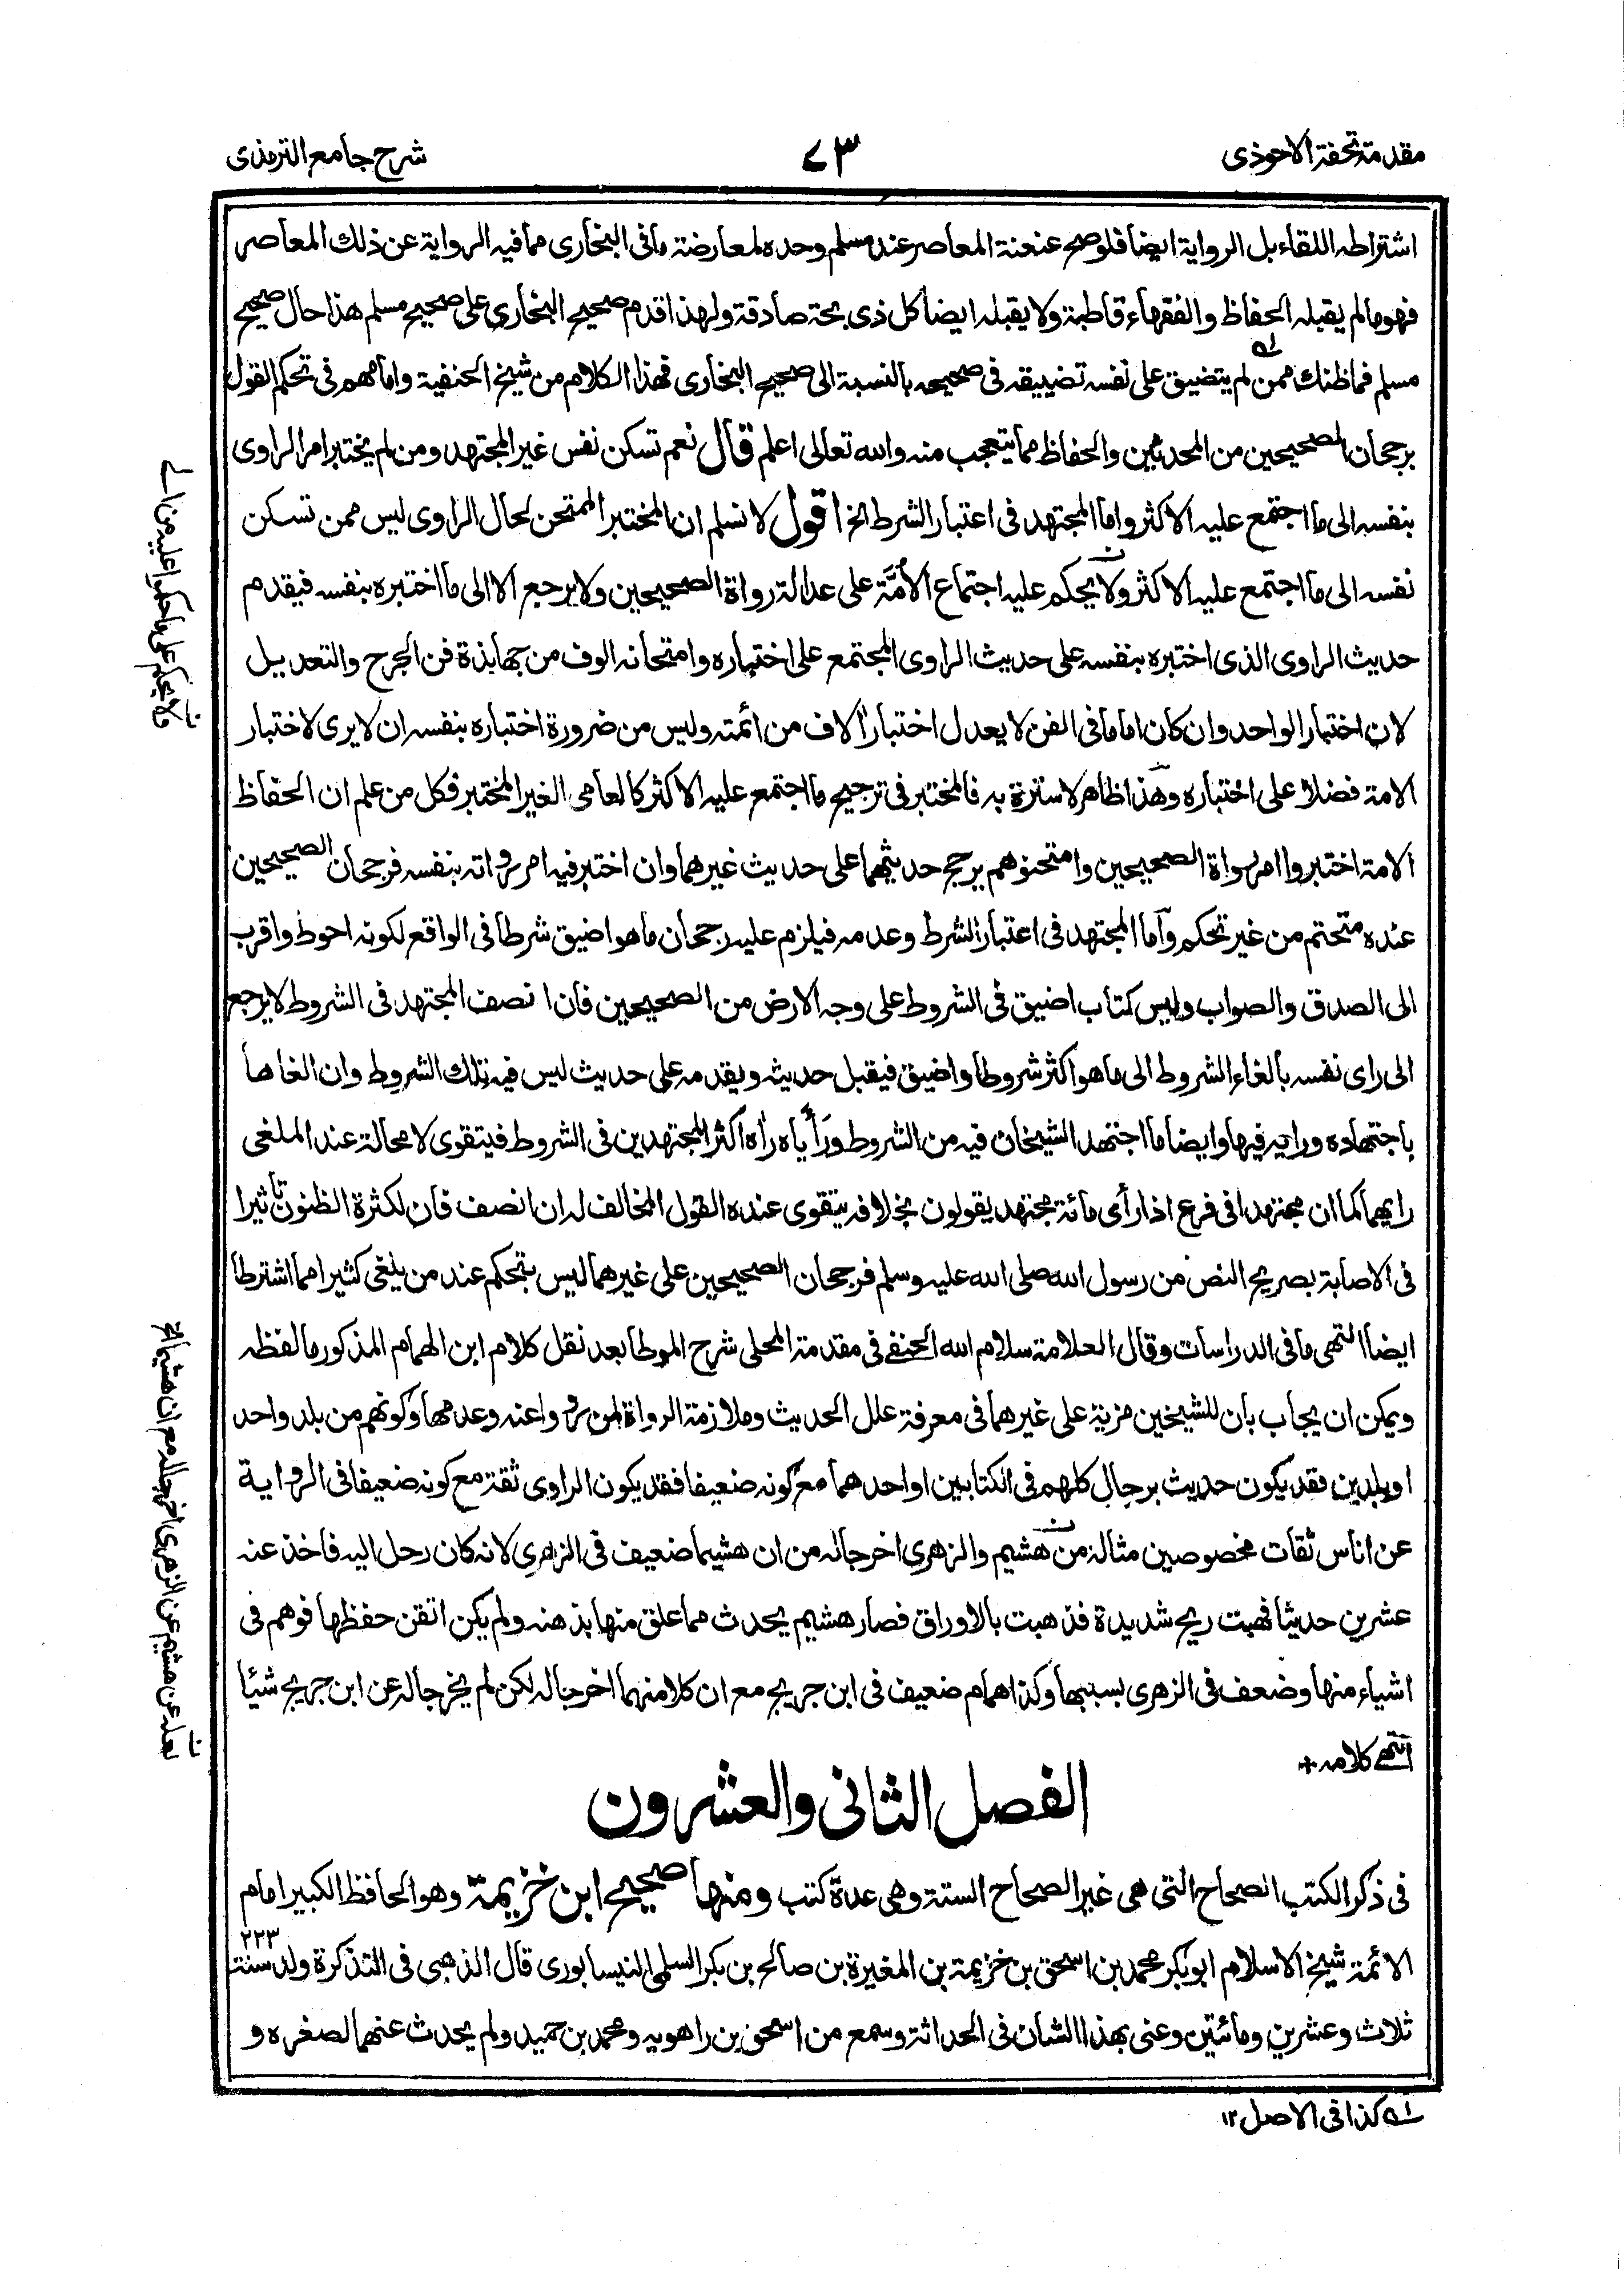 مقدمة تحفة الاحوذى
٧٣
شرح جامع الترمذى
اشتراطه اللقاء بل الرواية ايضا فلو صح عنعنة المعاصر عند مسلم وحده لمعارضة ما فى البخارى مما فيه الرواية عن ذلك المعاصر
فهو ما لم يقبله الحفاظ والفقهاء قاطبة ولا يقبله ايضا كل ذى بحة صادقة ولهذا اقدم صحيح البخارى على صحيح مسلم هذا حال صحيح
مسلم فما ظنك ممن لم يتضيق على نفسه تضييقه فى صحيحه بالنسبة الى صحيح البخارى فهذا الكلام من شيخ الحنفية وامامهم فى تحكم القول
برجحان الصحيحين من المحدثين والحفاظ مما يتعجب منه والله تعالى اعلم قال نعم تسكن نفس غير المجتهد ومن لم يختبر امر الراوى
بنفسه الى ما اجتمع عليه الاكثر واما المجتهد فى اعتبار الشرط الخ اقول لا نسلم ان المختبر الممتحن لحال الراوى ليس ممن تسكن
نفسه الى ما اجتمع عليه الاكثر ولا يحكم عليه اجتماع الأمّة على عدالة رواة الصحيحين ولا يرجع الا الى ما اختبره بنفسه فيقدم
حديث الراوى الذى اختبره بنفسه على حديث الراوى المجتمع على اختباره وامتحانه الوف من جهابذة فن الجرح والتعديل
لان اختبار الواحد وان كان اماما فى الفن لا يعدل اختبار الاف من ائمته وليس من ضرورة اختباره بنفسه ان لا يرى لاختبار
الامة فضلا على اختباره وهذا ظاهر لا سترة به فالمختبر فى ترجيح ما اجتمع عليه الاكثر كالعامى الغير المختبر فكل من علم ان الحفاظ
الامة اختبروا امر رواة الصحيحين وامتحنوهم يرجح حديثهما على حديث غيرهما وان اختبر فيه امر رواته بنفسه فرجحان الصحيحين
عنده متحتم من غير تحكم وأما المجتهد فى اعتبار الشرط وعدمه فيلزم عليه رجحان ما هو اضيق شرطا فى الواقع لكونه احوط واقرب
الى الصدق والصواب وليس كتاب اضيق فى الشروط على وجه الارض من الصحيحين فان انصف المجتهد فى الشروط لا يرجع
الى راى نفسه بالغاء الشروط الى ما هو اكثر شروطا واضيق فيقبل حديثه ويقدمه على حديث ليس فيه تلك الشروط وان الغاها
باجتهاده ورايه فيها وايضا ما اجتهد الشيخان فيه من الشروط ورأياه رأه اكثر المجتهدين فى الشروط فيتقوى لا محالة عند الملغى
رايهما كما ان مجتهدا فى فرع اذا رأى مائة مجتهد يقولون بخلافه يتقوى عنده القول المخالف له ان انصف فان لكثرة الظنون تاثيرا
فى الاصابة بصريح النص من رسول الله صلى الله عليه وسلم فرجحان الصحيحين على غيرهما ليس بتحكم عند من يلغى كثيرا مما اشترطا
ايضا انتهى ما فى الدراسات وقال العلامة سلام الله الحنفى فى مقدمة المحلى شرح الموطا بعد نقل كلام ابن الهمام المذكور ما لفظه
ويمكن ان يجاب بان للشيخين مزية على غيرهما فى معرفة علل الحديث وملازمة الرواة لمن رووا عنه وعدمها وكونهم من بلد واحد
او بلدين فقد يكون حديث برجال كلهم فى الكتابين او احدهما مع كونه ضعيفا فقد يكون الراوى ثقة مع كونه ضعيفا فى الرواية
عن اناس ثقات مخصوصين مثاله من هشيم والزهرى اخرجا له من ان هشيما ضعيف فى الزهرى لانه كان رحل اليه فاخذ عنه
عشرين حديثا فهبت ريح شديدة فذهبت بالاوراق فصار هشيم يحدث مما علق منها بذهنه ولم يكن اتقن حفظها فوهم فى
اشياء منها وضعف فى الزهرى بسببها وكذا همام ضعيف فى ابن جريج مع ان كلا منهما اخرجا له لكن لم يخرجا له عن ابن جريج شيئا
انتهى كلامه +
الفصل الثانى والعشرون
فى ذكر الكتب الصحاح التى هى غير الصحاح الستة وهى عدة كتب ومنها صحيح ابن خزيمة وهو الحافظ الكبير امام
الائمة شيخ الاسلام ابو بكر محمد بن اسحق بن خزيمة بن المغيرة بن صالح بن بكر السلمى النيسابورى قال الذهبى فى التذكرة ولد سنة ٢٢٣
ثلاث وعشرين ومائتين وعنى بهذا الشان فى الحداثة وسمع من اسحق بن راهويه ومحمد بن حميد ولم يحدث عنهما لصغره و
له كذا فى الاصل ١٢
لعله عن هشيم عن الزهرى اخرجا له مع ان هشيما الخ